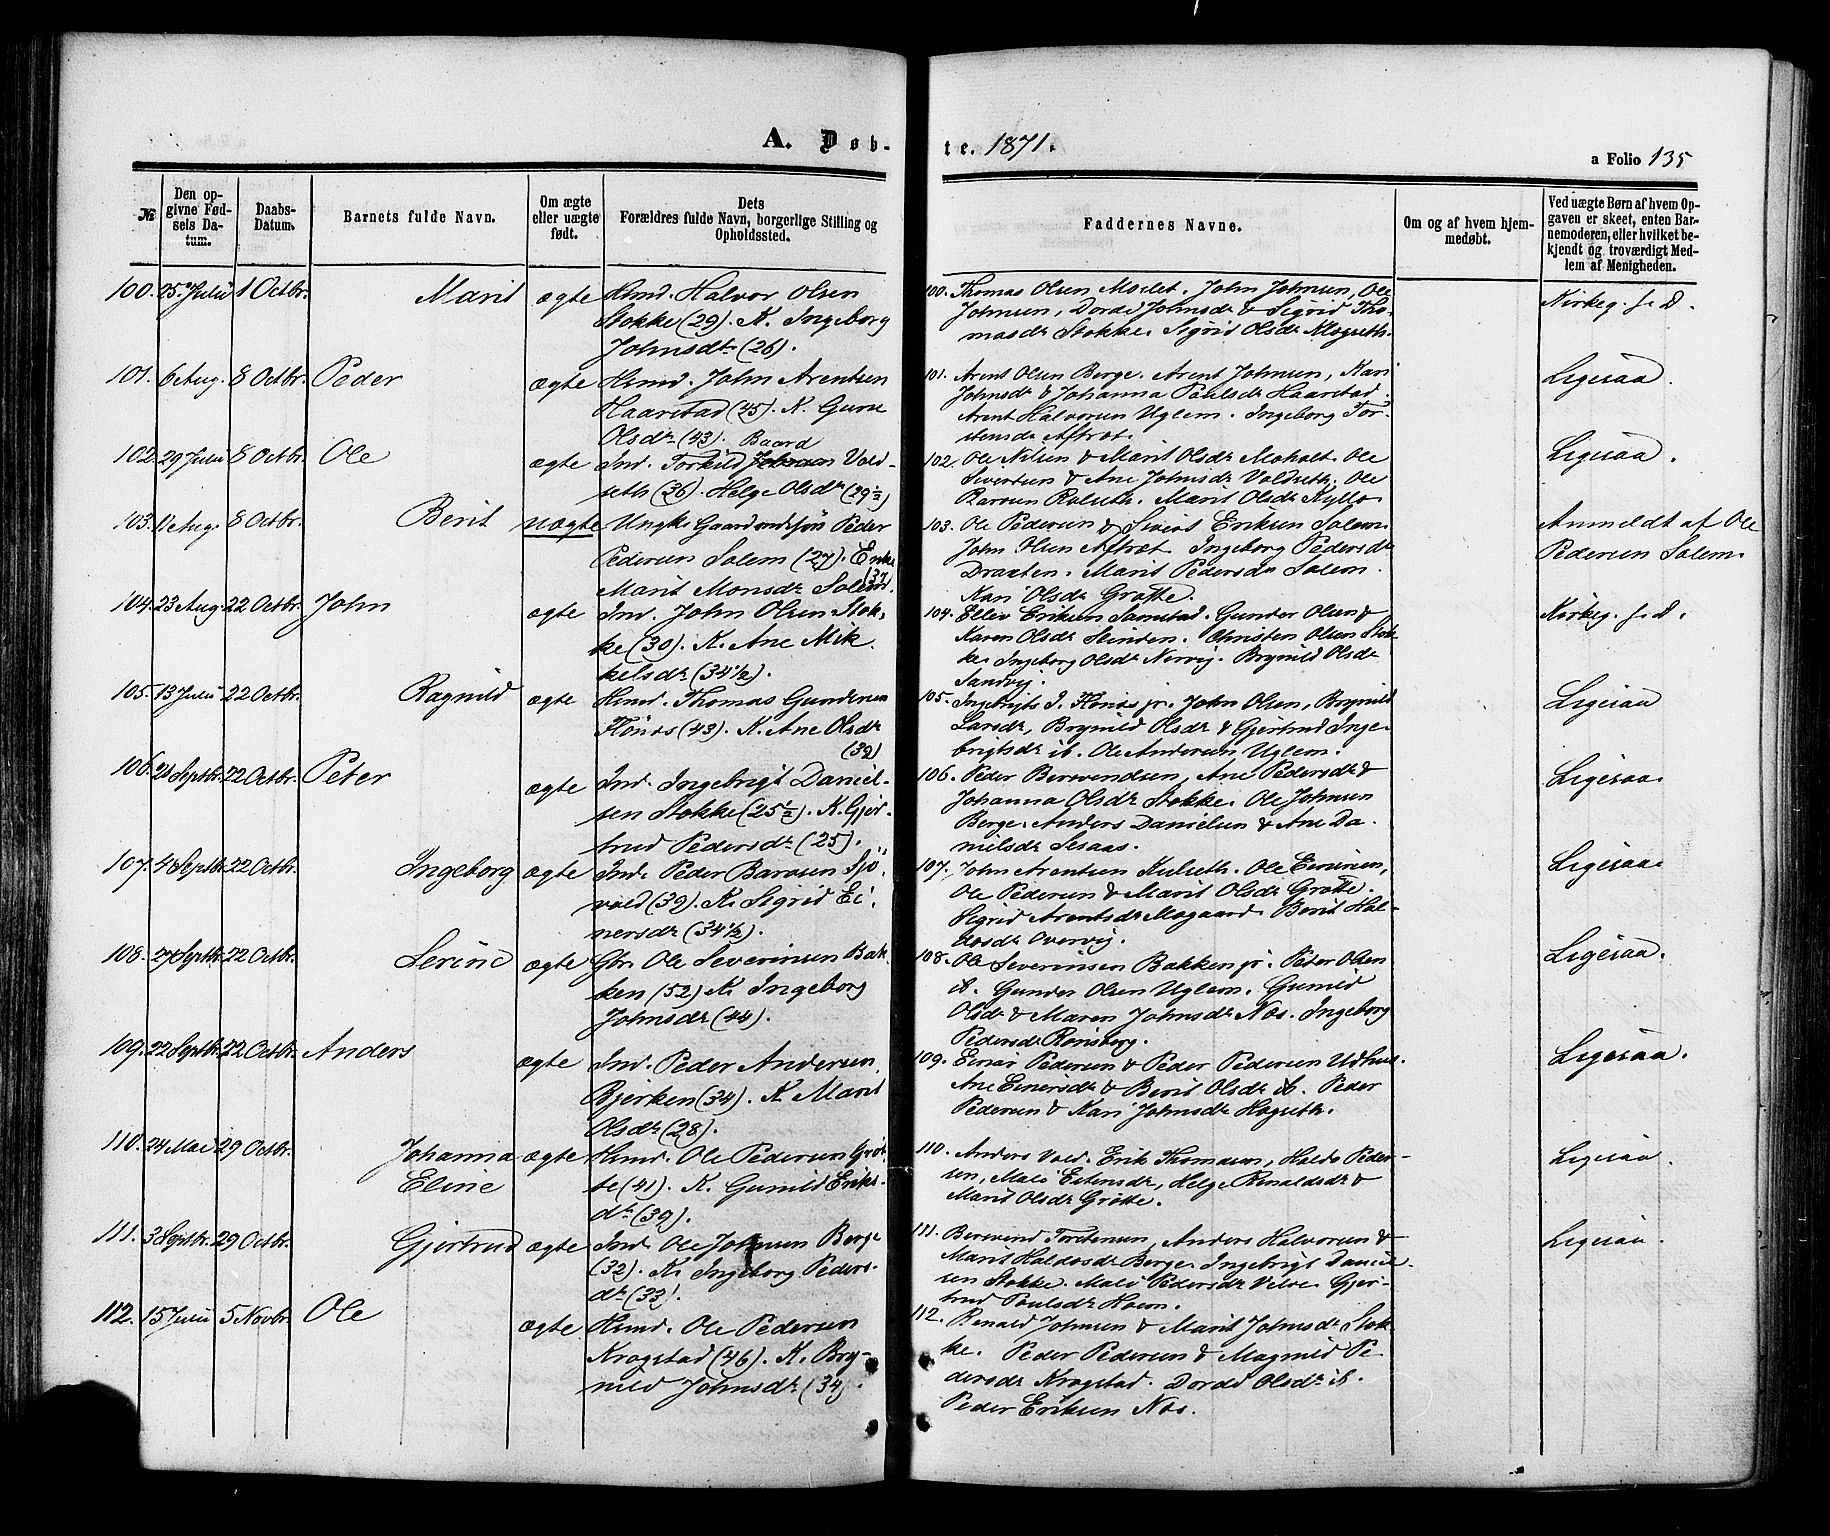 A. Døb-
te. 1871.
a Folio 135
№
Den op-
givne Fød-
sels Da-
tum.
Daabs-
Datum.
Barnets fulde Navn.
Om ægte
eller uægte
født.
Dets
Forældres fulde Navn, borgerlige Stilling og
Opholdssted.
Faddernes Navne.
Om og af hvem hjem-
medøbt.
Ved uægte Børn af hvem Op-
gaven er skeet, enten Bar-
nemoderen, eller hvilket be-
kjendt og troværdigt Med-
lem af Menigheden.
100. 25 Julii 1 Octbr. Marit ægte Hsmd. Halvor Olsen
Stokke (29). K. Ingeborg
Johnsdr (26).
100. Thomas Olsen Moslet. John Johnsen, Ole
Johnsen, Dordi Johnsdr & Sigrid Tho-
masdr Stokke. Sigrid Olsdr
Kirkeg. f. d.
101. 6 Aug. 8 Octbr. Peder ægte Hsmd. John Arentsen
Haarstad (45). K. Guru
Olsdr (43).
101. Arent Olsen Berge. Arent Johnsen, Kari
Johnsdr & Johanna Paulsdr Haarstad.
Arent Halvorsen Uglem. Ingeborg Tor-
stensdr Aftret.
Ligesaa.
102. 29 Julii 8 Octbr. Ole ægte Ind. Torkild Baard Vold-
seth (36). Helge Olsdr (29½)
102. Ole Nilsen & Marit Olsdr Moholt. Ole
Sivertsen & Ane Johnsdr Voldseth. Ole
Barosen Rolseth. Marit Olsdr Kyllo.
Ligesaa.
103. 11 Aug. 8 Octbr. Berit uægte Ungk. Gaardmdsøn Peder
Pedersen Solem (27). Enke
Marit Monsdr Solem (37).
103. Ole Pedersen & Sivert Eriksen Solem.
John Olsen Aftret. Ingeborg Pedersdr
Draxten. Marit Pedersdr Solem.
Kari Olsdr Grøtte.
Anmeldt af Ole
Pedersen Solem.
104. 23 Aug. 22 Octbr. John ægte Ind. John Olsen Stok-
ke (30). K. Ane Mik-
kelsdr (34½).
104. Ellev Eriksen Samstad. Gunder Olsen &
Karen Olsdr Slinden. Christen Olsen Stok-
ke. Ingeborg Olsdr Nervig. Brynild Olsdr
Sandvig.
Kirkeg. f. d.
105. 13 Julii 22 Octbr. Ragnild ægte Hsmd. Thomas Gundersen
Hønås (43). K. Ane Olsdr
(39)
105. Ingebrigt J. Hønås jr. John Olsen, Brynild
Larsdr, Brynild Olsdr & Gjertrud Inge-
brigtsdr ib. Ole Andersen Uglem.
Ligesaa
106. 21 Septbr. 22 Octbr. Peter ægte Ind. Ingebrigt Daniel-
sen Stokke (25½). K. Gjer-
trud Pedersdr (25).
106. Peder Berevendsen, Ane Pedersdr &
Johanna Olsdr Stokke. Ole Johnsen
Berge. Anders Danielsen & Ane Da-
nielsdr Sesaas.
Ligesaa.
107. 4 Septbr. 22 Octbr. Ingeborg ægte Ind. Peder Barosen Sjø-
vold (39). K. Sigrid Ei-
nersdr (34½).
107. John Arentsen Kulseth. Ole Einersen,
Ole Pedersen & Marit Olsdr Grøtte.
Sigrid Arentsdr Mogaard. Berit Hal-
dosdr Overvig.
Ligesaa.
108. 27 Septbr. 22 Octbr. Serine ægte Gbr. Ole Severinsen Bak-
ken (52). K. Ingeborg
Johnsdr (44).
108. Ole Severinsen Bakken jr. Peter Olsen
ib. Gunder Olsen Uglem. Gunild
Olsdr & Maren Johnsdr Næs. Ingeborg
Pedersdr Rønsberg.
Ligesaa.
109. 22 Septbr. 22 Octbr. Anders ægte Ind. Peder Andersen
Bjerken (34). K. Marit
Olsdr (28).
109. Einar Pedersen & Peder Pedersen Udhus.
Ane Einersdr & Berit Olsdr ib. Peder
Pedersen & Kari Johnsdr Hogseth.
Ligesaa.
110. 24 Mai 29 Octbr. Johanna Eline ægte Hsmd. Ole Pedersen Grøt-
te (41). K. Gunild Eriks-
dr (39).
110. Anders Vold. Erik Thomasen, Haldo Peder-
sen, Mali Estensdr, Helge Renaldsdr &
Marit Olsdr Grøtte.
Ligesaa.
111. 3 Septbr. 29 Octbr. Gjertrud ægte Ind. Ole Johnsen Berge
(32). K. Ingeborg Peders-
dr (33).
111. Berevend Torstensen, Anders Halvorsen &
Marit Haldosdr Berge. Ingebrigt Daniel-
sen Stokke. Mali Pedersdr Velve. Gjer-
trud Paulsdr Hoem.
Ligesaa.
112. 15 Julii 5 Novbr. Ole ægte Hsmd. Ole Pedersen
Krogstad (46). K. Bry-
nild Johnsdr (34).
112. Renald Johnsen & Marit Johnsdr Stok-
ke. Peder Pedersen & Magnild Pe-
dersdr Krogstad. Dordi Olsdr ib.
Peder Eriksen Næs.